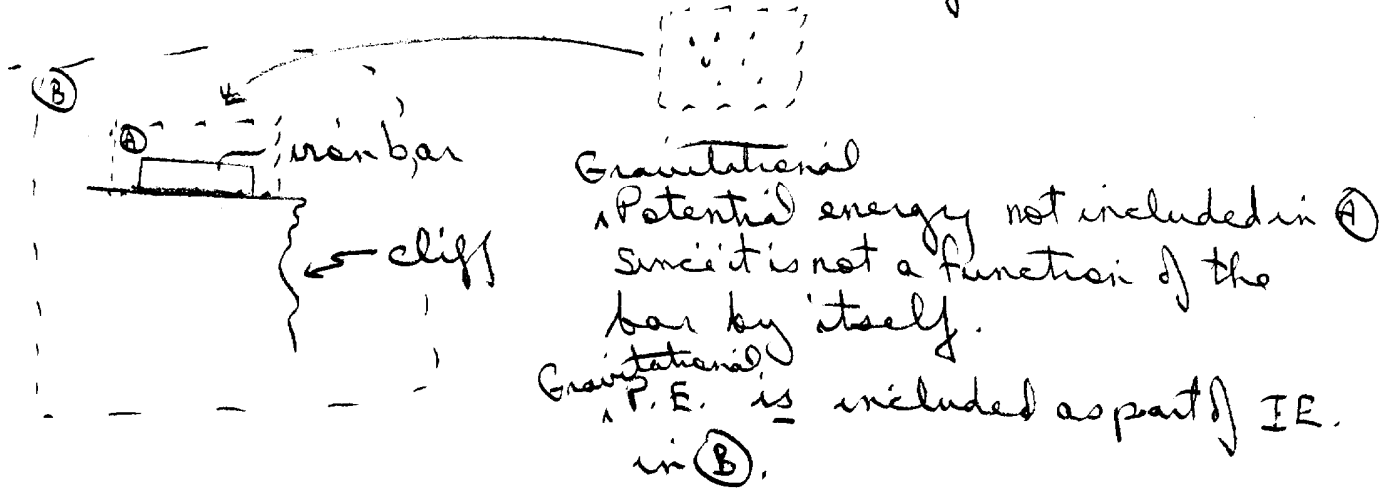 Ⓑ
Ⓐ
iron bar
cliff
Gravitational
^Potential energy not included in Ⓐ
since it is not a function of the
bar by itself.
Gravitational
^P.E. is included as part of IE.
in Ⓑ.